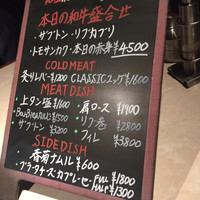 本日の和牛盛合せ
・ザブトン ・リブカブリ
・トモサンカク・本日の赤身 ¥4500
COLD MEAT
炙りレバー¥1200 CLASSICユッケ¥1600
MEAT DISH
・上タン塩¥1600 ・肩ロース ¥1900
・ザブトン ¥3200 ・リブ巻 ¥2800
・フィレ ¥3800
SIDE DISH
・香菊ナムル ¥600
・ブラータチーズ・カプレーゼ FULL ¥1800
HALF ¥1300